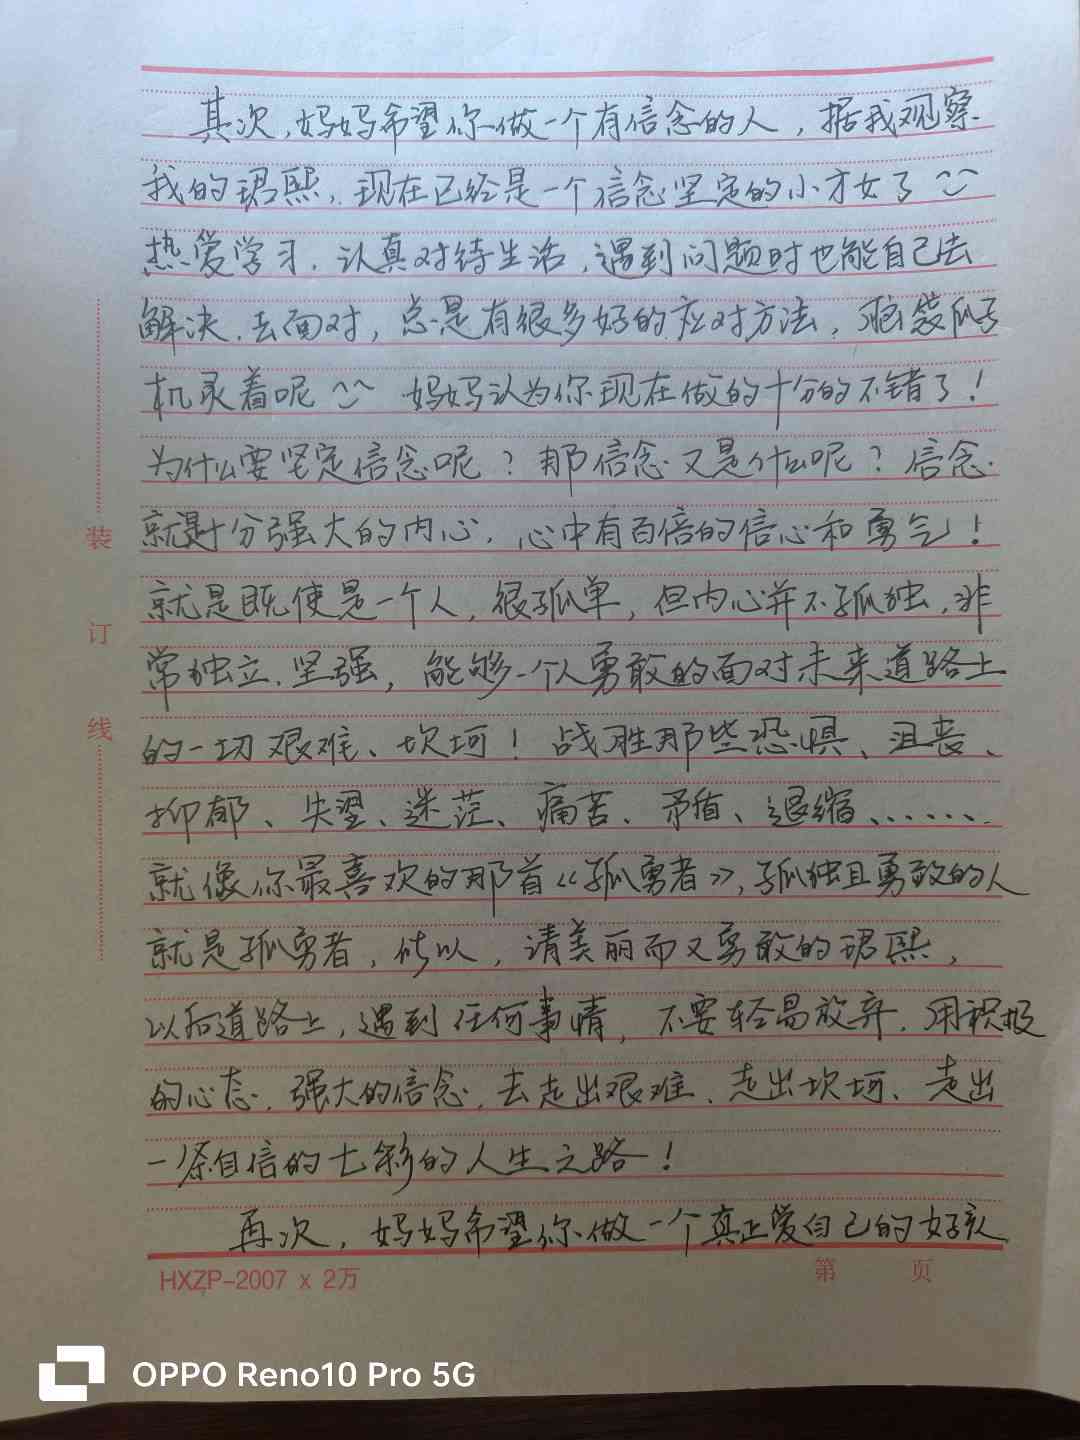 其次，妈妈希望你做一个有信念的人，据我观察
我的珺熙，现在已经是一个信念坚定的小才女了
热爱学习，认真对待生活，遇到问题时也能自己去
解决，去面对，总是有很多好的应对方法，脑袋瓜子
机灵着呢 妈妈认为你现在做的十分的不错了！
为什么要坚定信念呢？那信念又是什么呢？信念
就是十分强大的内心，心中有百倍的信心和勇气！
就是既使是一个人，很孤单，但内心并不孤独，非
常独立、坚强，能够一个人勇敢的面对未来道路上
的一切艰难、坎坷！战胜那些恐惧、沮丧、
抑郁、失望、迷茫、痛苦、矛盾、退缩、……
就像你最喜欢的那首《孤勇者》，孤独且勇敢的人
就是孤勇者，所以，请美丽而又勇敢的珺熙，
以后道路上，遇到任何事情，不要轻易放弃，用积极
的心态，强大的信念，去走出艰难、走出坎坷、走出
一条自信的七彩的人生之路！
再次，妈妈希望你做一个真正爱自己的好孩
装
订
线
HXZP-2007 x 2万
第 页
OPPO Reno10 Pro 5G